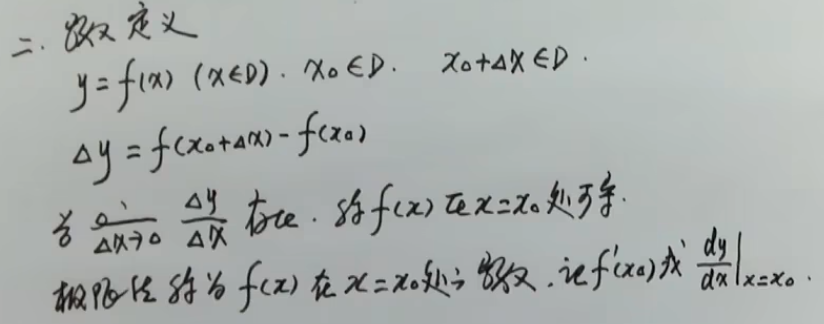 二. 导数定义
y = f(x) (x∈D). x₀∈D. x₀+Δx∈D.
Δy = f(x₀+Δx) - f(x₀)
若 lim Δx→0 Δy/Δx 存在. 称 f(x) 在 x=x₀ 处可导.
极限值称为 f(x) 在 x=x₀处的导数. 记 f'(x₀) 或 dy/dx|x=x₀.